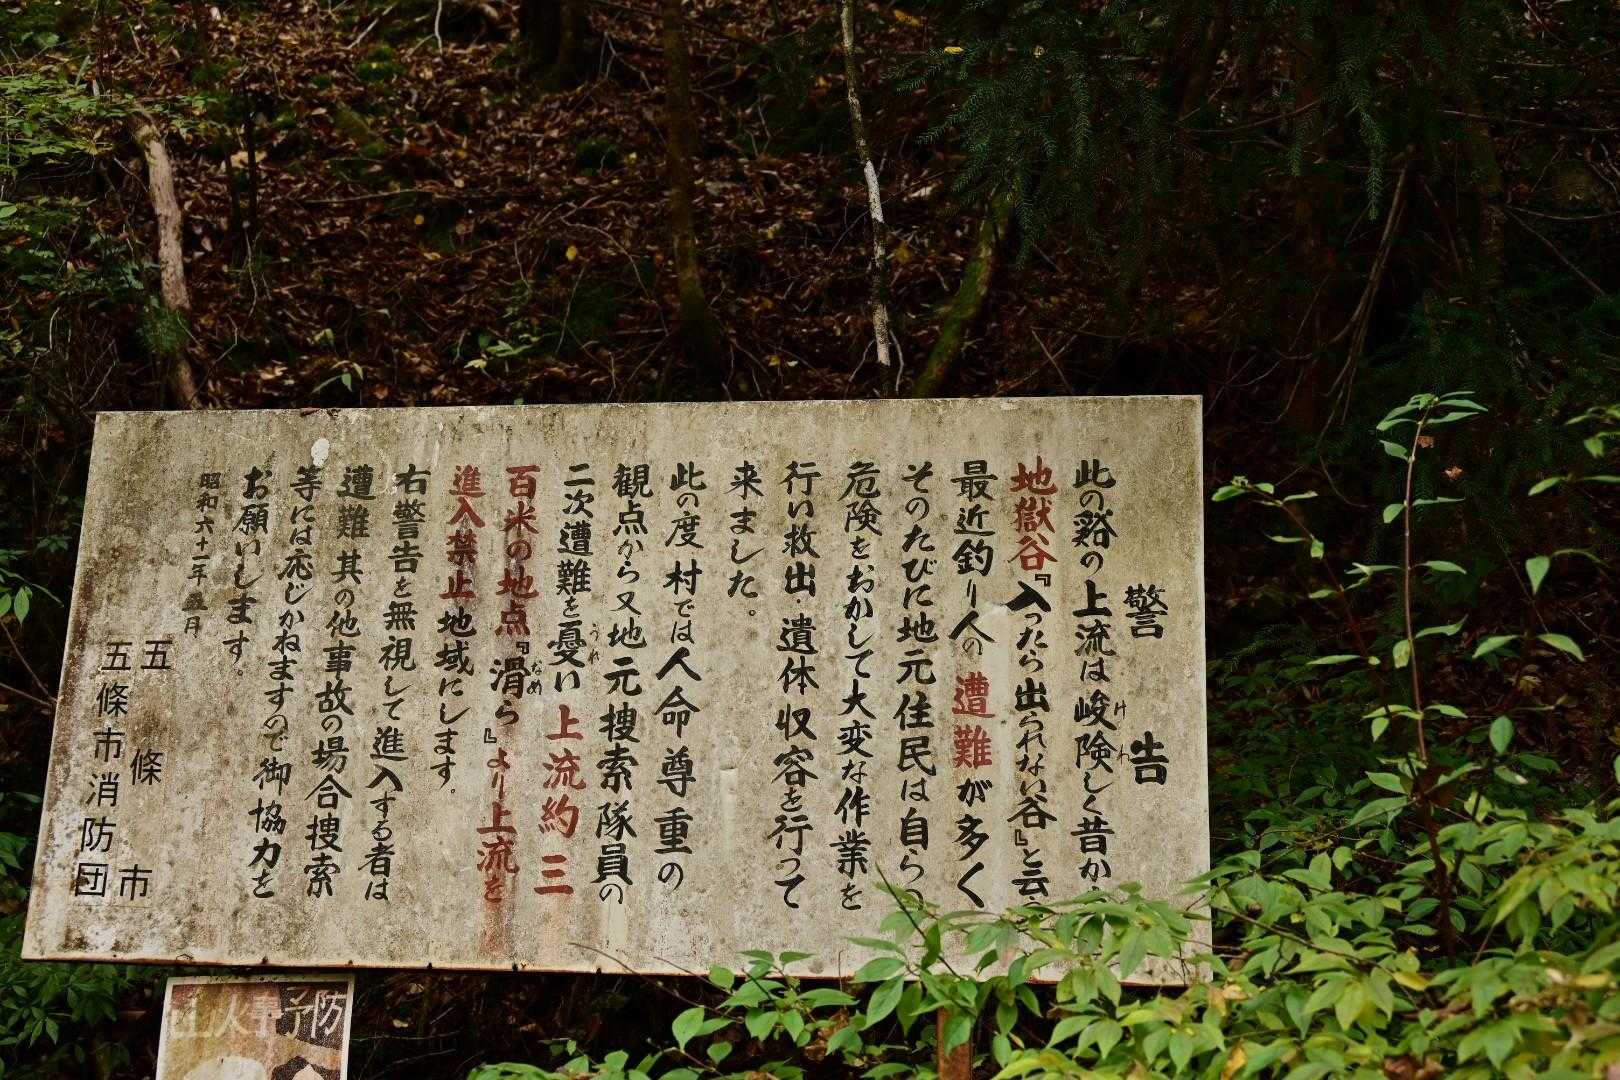 警告
此の谿の上流は峻険しく昔か
けわ
地獄谷『入ったら出られない谷』と云
最近釣り人の遭難が多く
そのたびに地元住民は自らの
危険をおかして大変な作業を
行い救出・遺体収容を行って
来ました。
此の度村では人命尊重の
観点から又地元捜索隊員の
二次遭難を憂い上流約三
うれ
百米の地点『滑ら』より上流を
なめ
進入禁止地域にします。
右警告を無視して進入する者は
遭難其の他事故の場合捜索
等には応じかねますので御協力を
お願いします。
昭和六十一年五月
五條市
五條市消防団
山火事予防